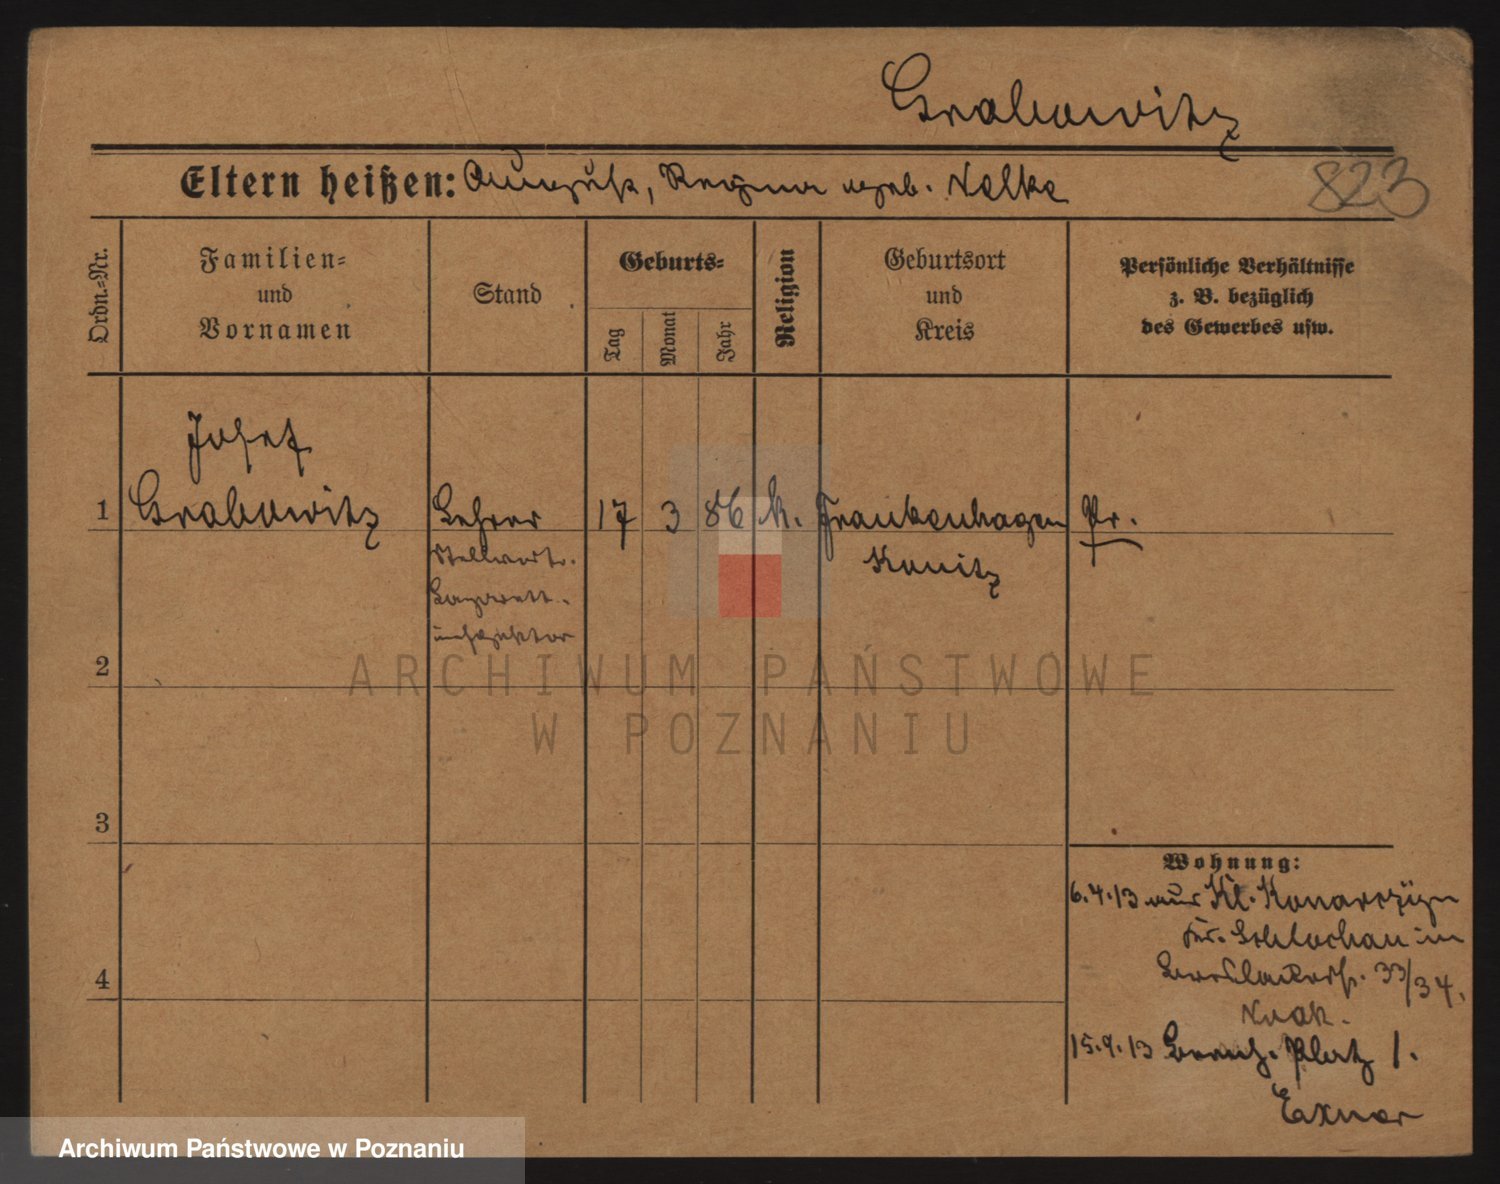 Grabowitz
Eltern heißen: August, Regina geb. Nelke
823
Ordn.-Nr.
Familien-
und
Vornamen
Stand
Geburts-
Tag
Monat
Jahr
Religion
Geburtsort
und
Kreis
Persönliche Verhältnisse
z. B. bezüglich
des Gewerbes usw.
Josef
1 Grabowitz Lehrer 17 3 86 k. Frankenhagen Pr.
Konitz
Stellvertr.
Lazarett-
inspektor
2
3
4
Wohnung:
6.4.13 aus Kl. Konarczyn
Kr. Schlochau in
33/34.
15.9.13 Platz 1.
Exner
ARCHIWUM PAŃSTWOWE
W POZNANIU
Archiwum Państwowe w Poznaniu